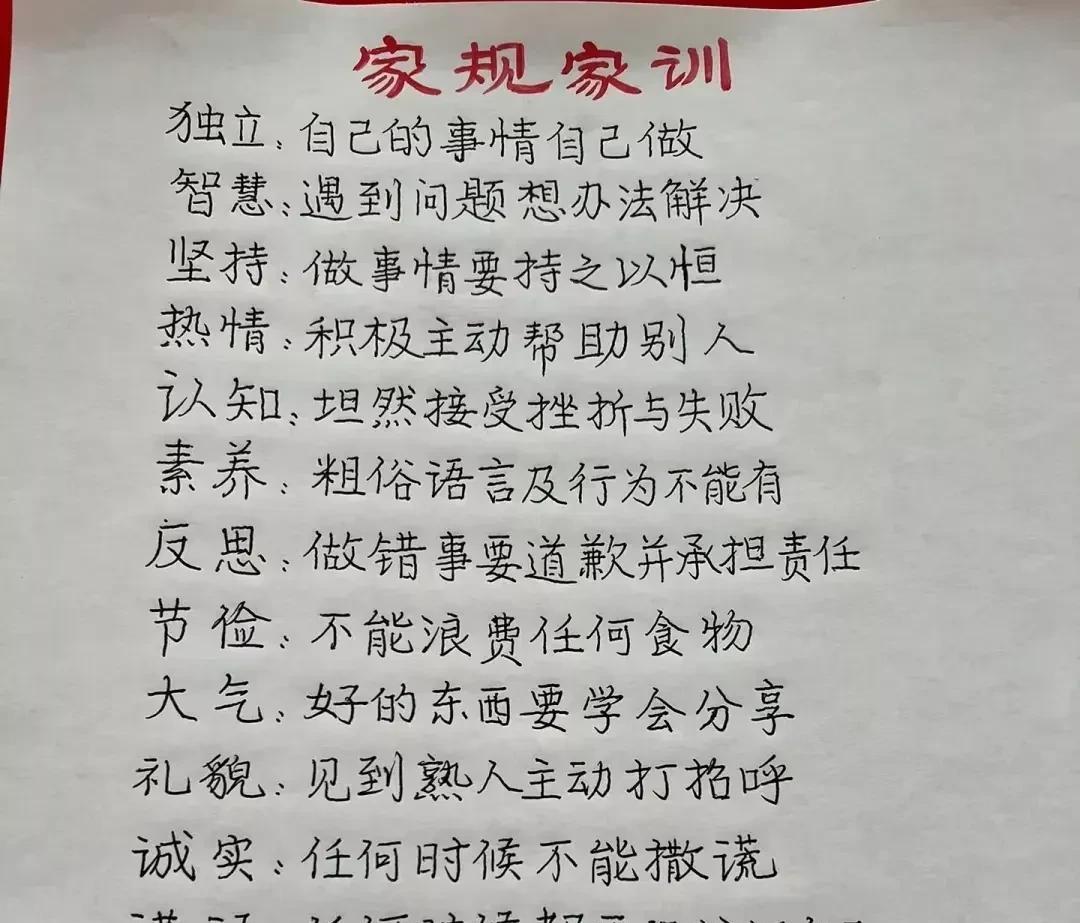 家规家训
独立:自己的事情自己做
智慧:遇到问题想办法解决
坚持:做事情要持之以恒
热情:积极主动帮助别人
认知:坦然接受挫折与失败
素养:粗俗语言及行为不能有
反思:做错事要道歉并承担责任
节俭:不能浪费任何食物
大气:好的东西要学会分享
礼貌:见到熟人主动打招呼
诚实:任何时候不能撒谎